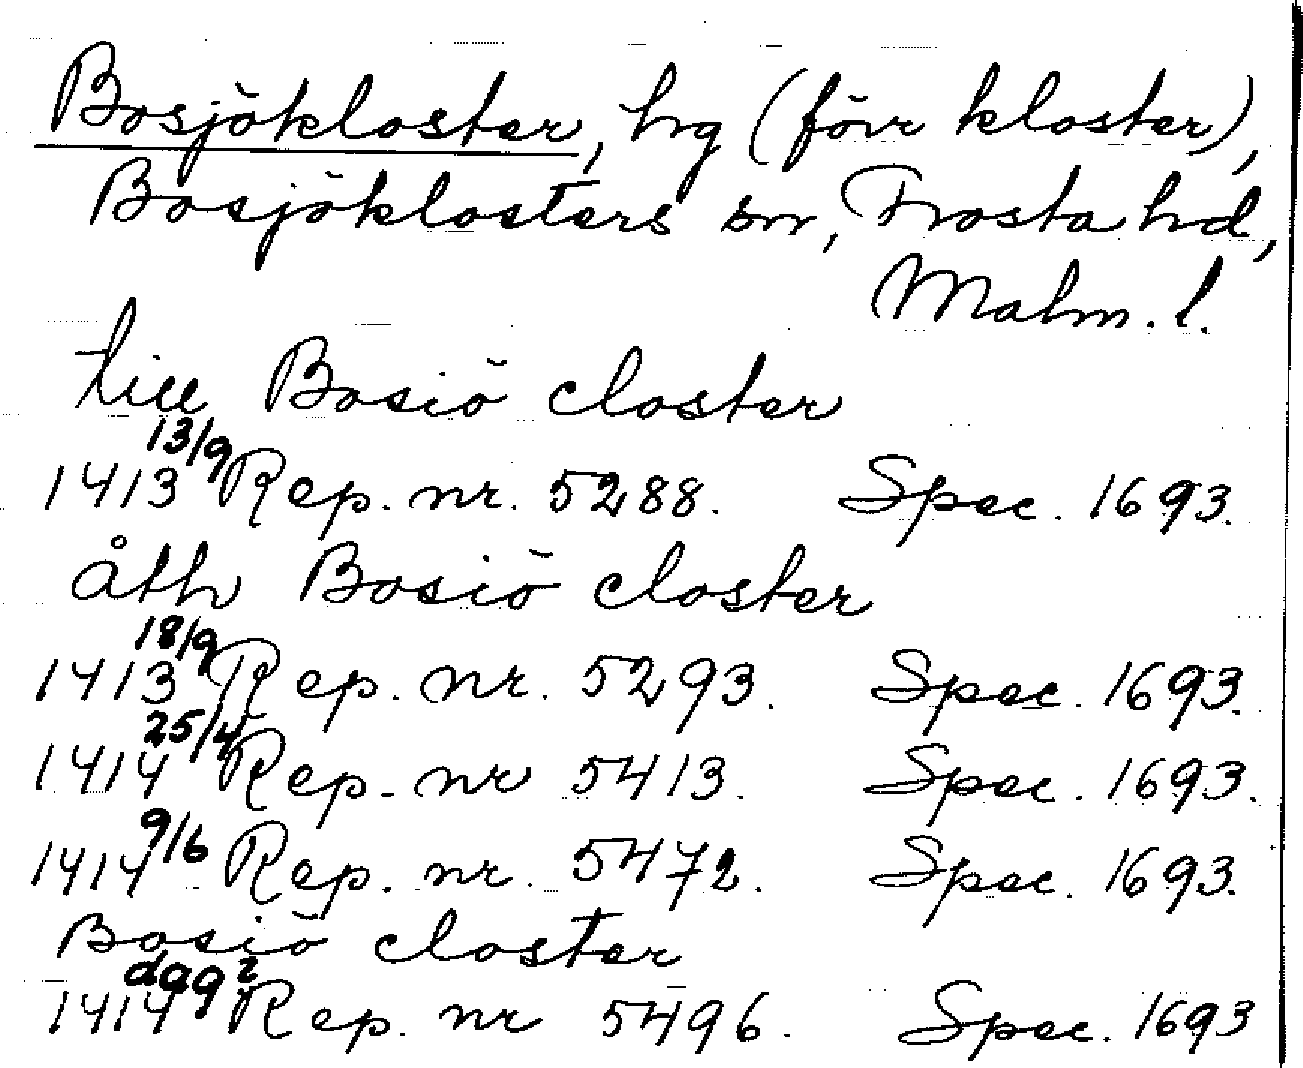 Bosjökloster, hg (förr kloster),
Bosjöklosters sn, Frosta hd,
Malm. l.
till Bosiö closter
1413 13/9 Rep. nr. 5288. Spec. 1693.
åth Bosiö closter
1413 18/9 Rep. nr. 5293. Spec. 1693.
1414 25/4 Rep. nr 5413. Spec. 1693.
1414 9/6 Rep. nr. 5472. Spec. 1693.
Bosiö closter
1414 dag? Rep. nr 5496. Spec. 1693